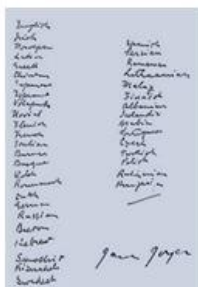 English
Irish
Norwegian
Latin
Greek
Chinese
Japanese
Esperanto
Volapuk
Novial
Flemish
French
Italian
Burmese
Basque
Romaunsch
Dutch
German
Russian
Breton
Hebrew
Sanskrit
Kisuaheli
Swedish
Spanish
Persian
Rumanian
Lithuanian
Malay
Finnish
Albanian
Icelandic
Arabic
Portuguese
Czech
Turkish
Polish
Ruthenian
Hungarian
James Joyce